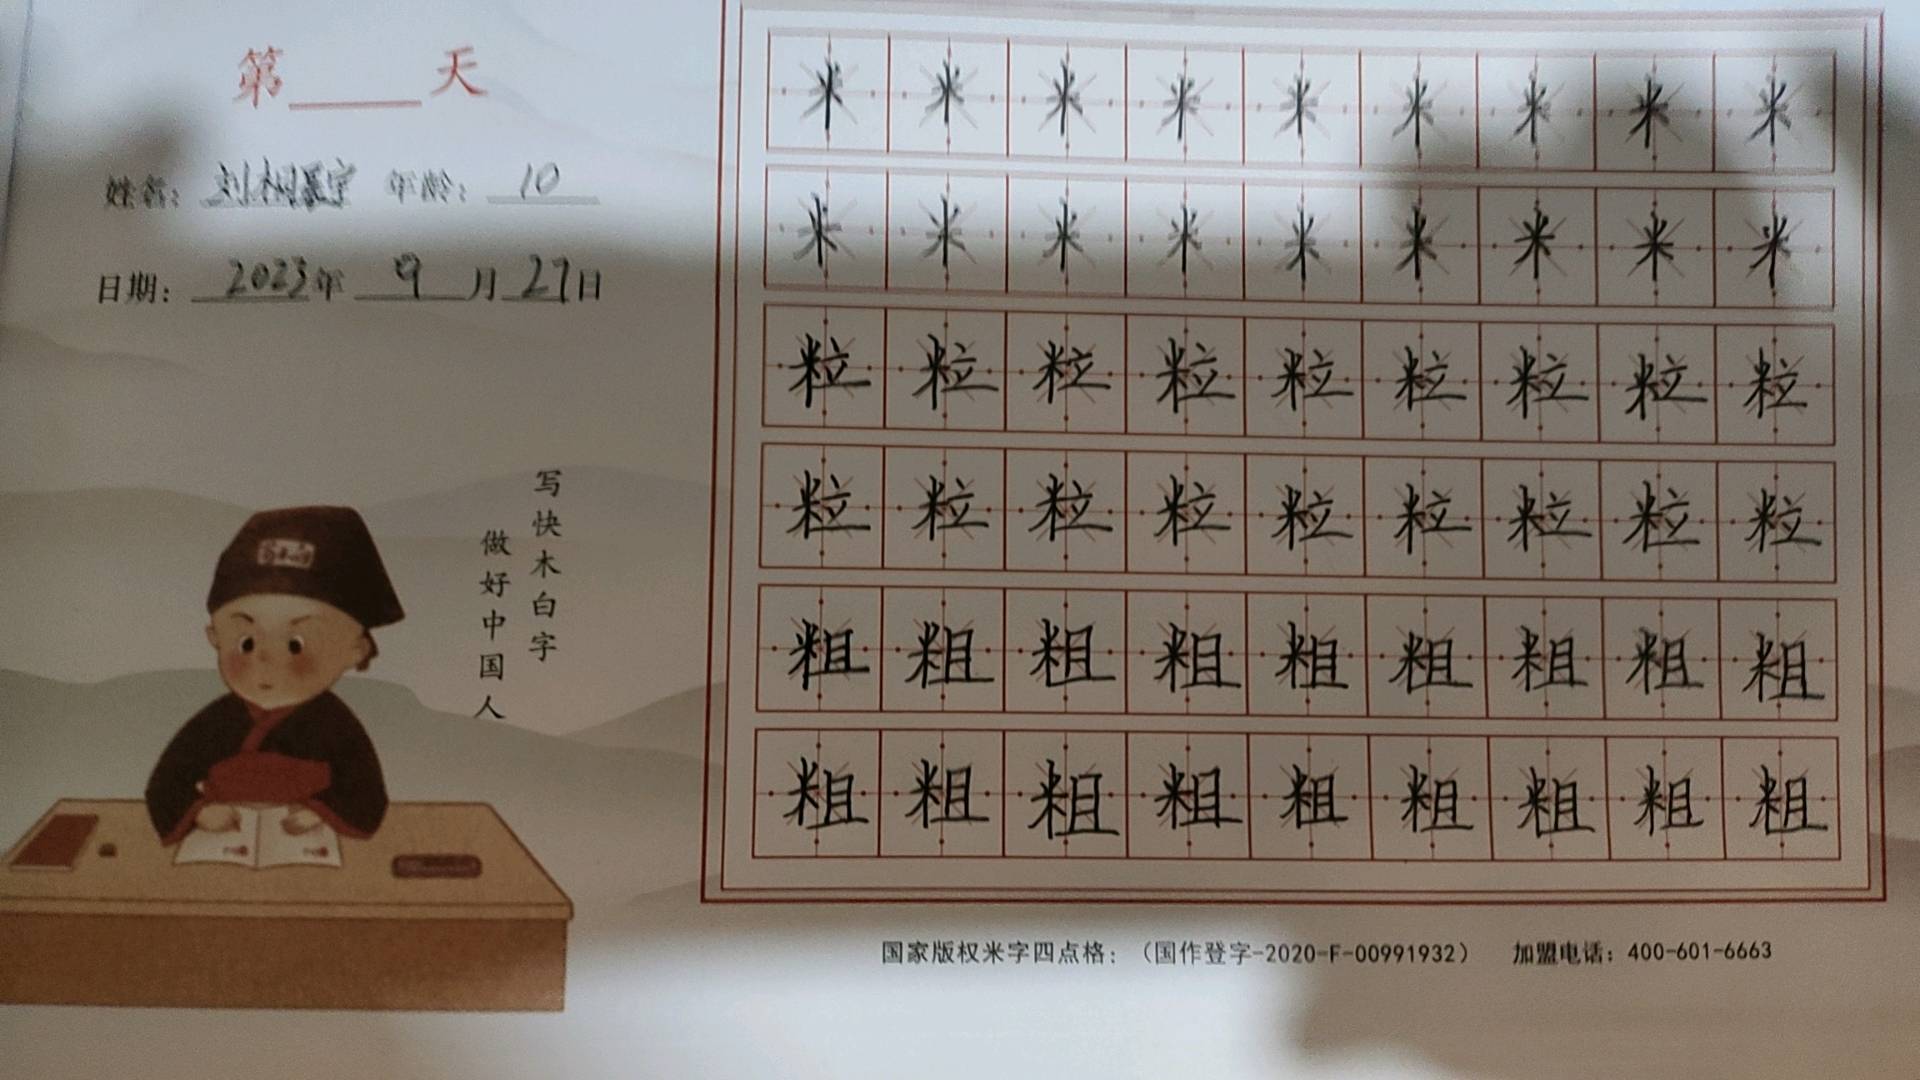 第____天
姓名：刘桐 年龄：10
日期：2023年 9月27日
写快木白字
做好中国人
米米米米米米米米米
米米米米米米米米米
粒粒粒粒粒粒粒粒粒
粒粒粒粒粒粒粒粒粒
粗粗粗粗粗粗粗粗粗
粗粗粗粗粗粗粗粗粗
国家版权米字四点格：（国作登字-2020-F-00991932） 加盟电话：400-601-6663